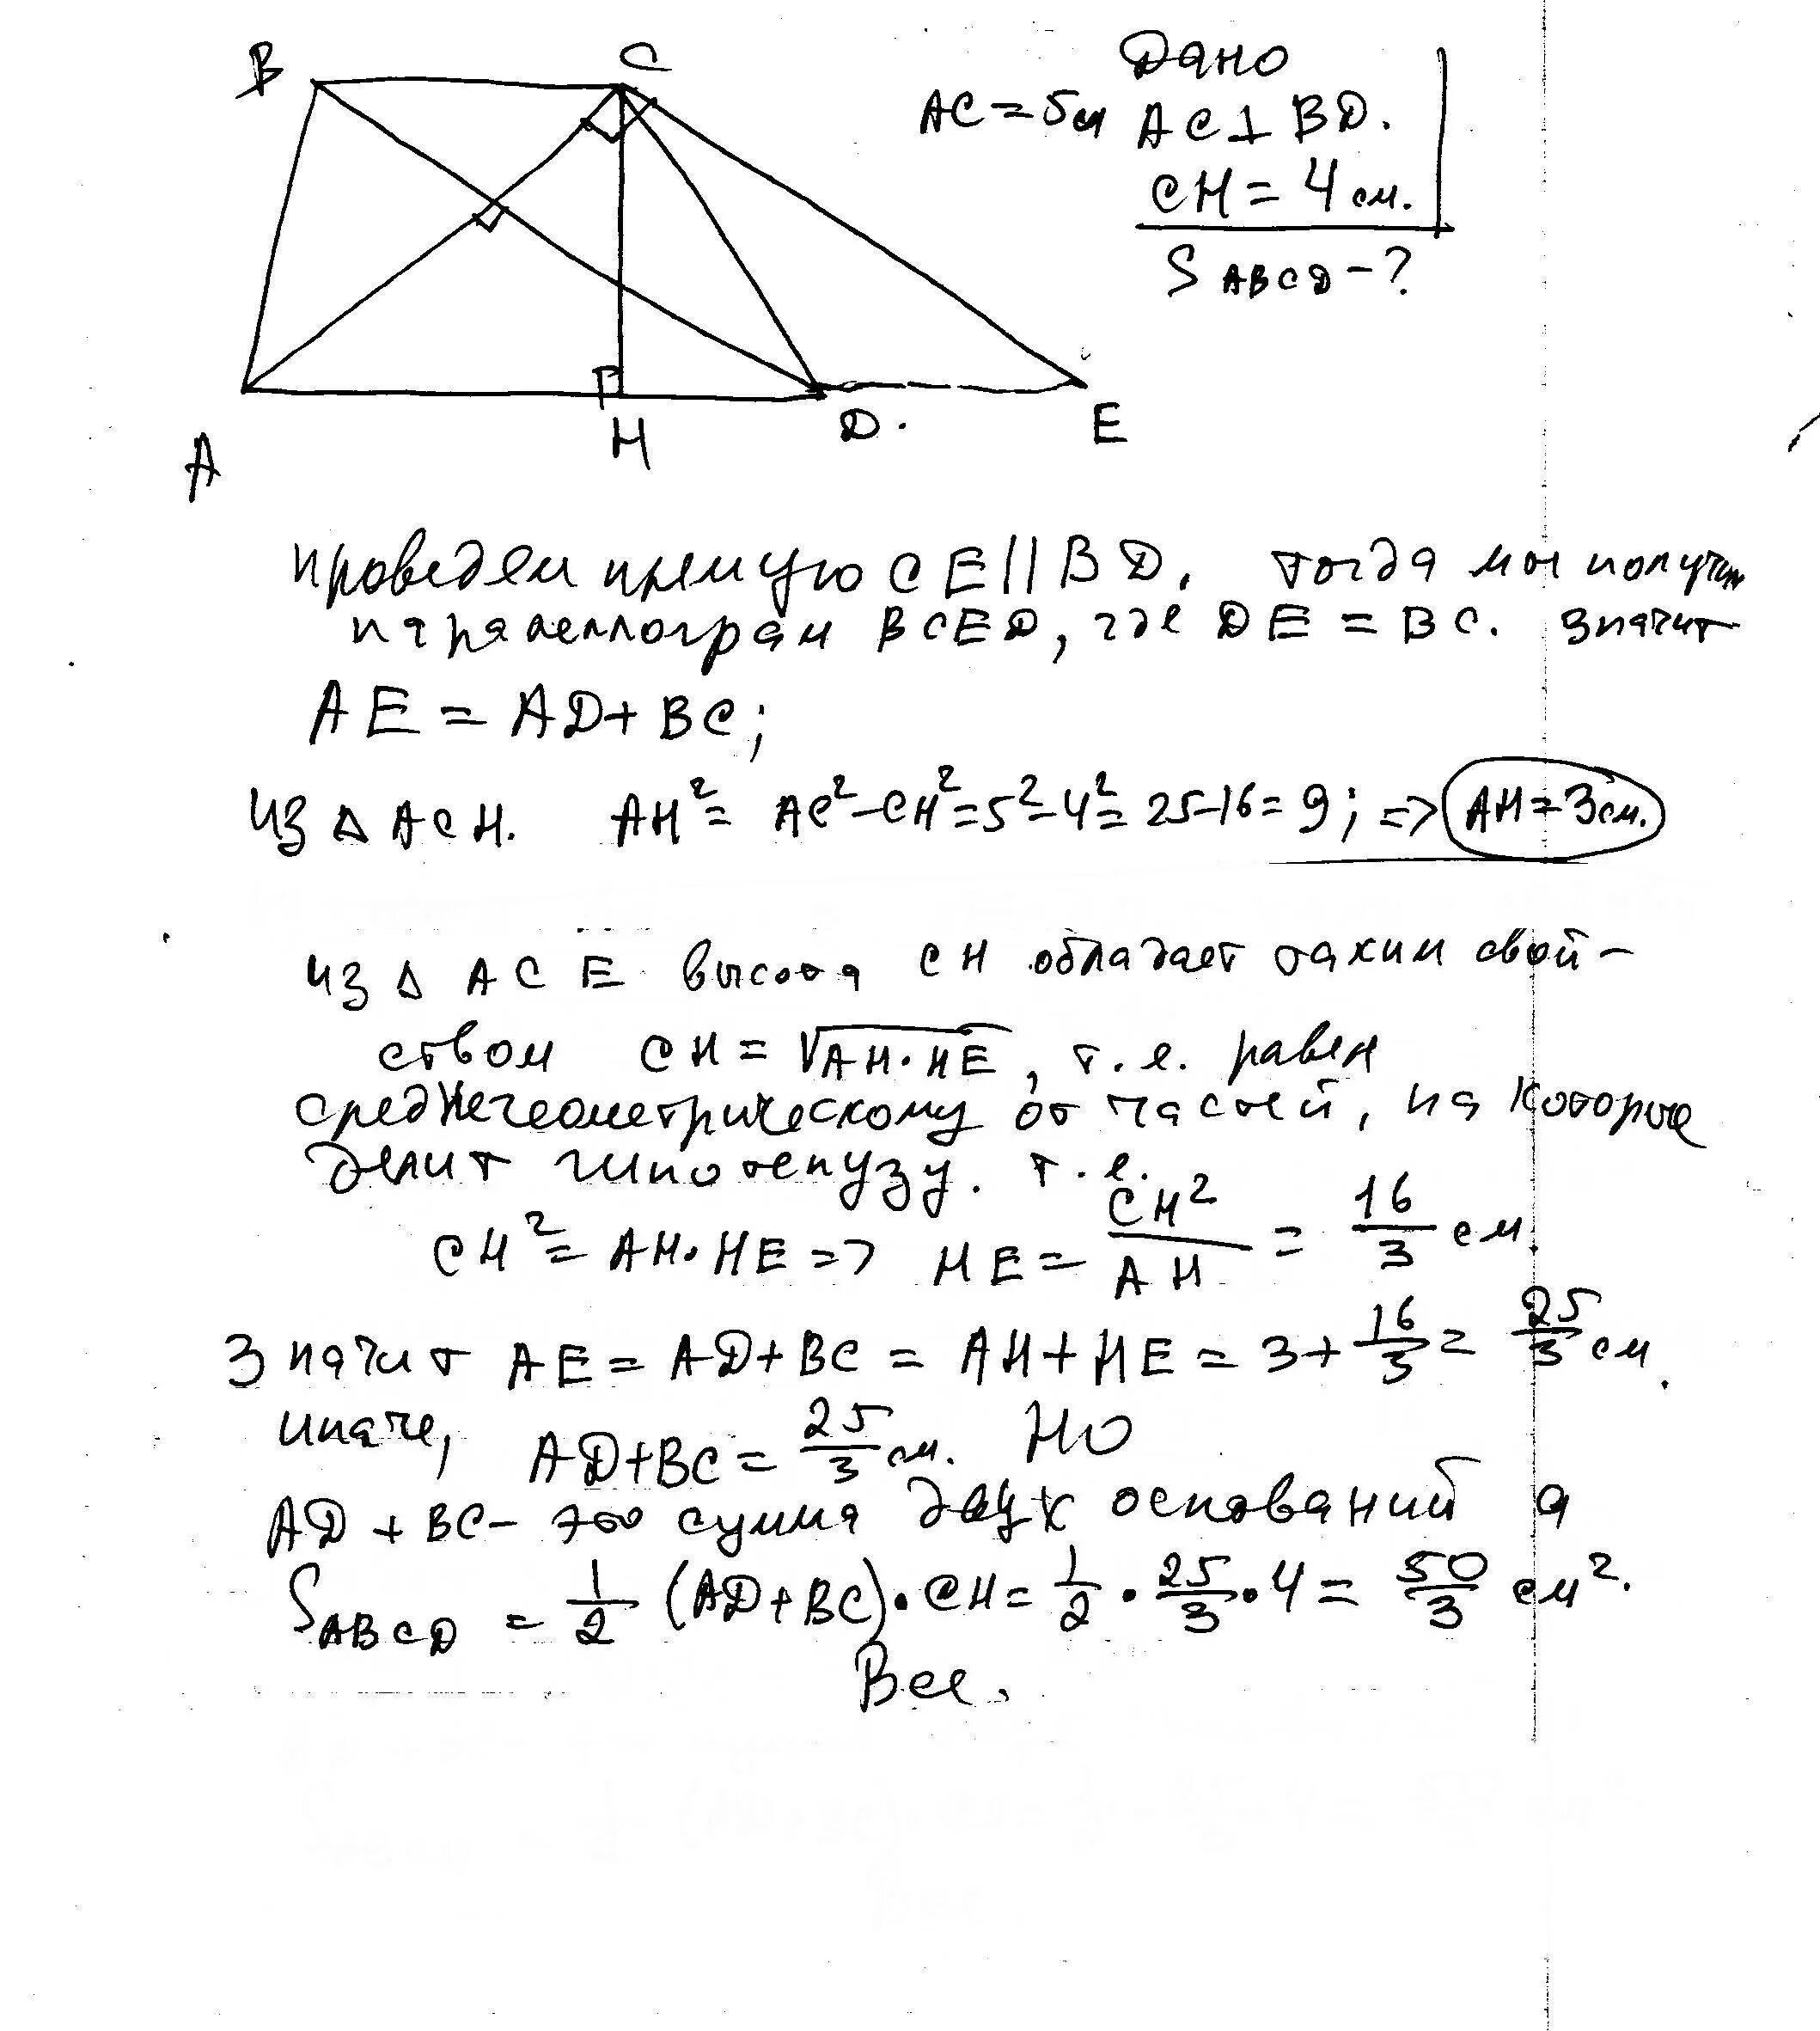 B
C
A
H
D.
E
Дано
AC = 5см AC ⊥ BD.
CH = 4 см.
S ABCD - ?
проведем прямую CE || BD, тогда мы получим
параллеллограм BCED, где DE = BC. значит
AE = AD + BC;
из Δ ACH. AH² = AC² - CH² = 5² - 4² = 25 - 16 = 9; => AH = 3 см.
из Δ ACE высота CH обладает таким свой-
ством CH = √AH·HE, т.е. равен
среднегеометрическому от частей, на которые
делит гипотенузу. т.е.
CH² = AH·HE => HE = CH²/AH = 16/3 см.
Значит AE = AD + BC = AH + HE = 3 + 16/3 = 25/3 см.
иначе, AD + BC = 25/3 см. Но
AD + BC - это сумма двух оснований а
S ABCD = 1/2 (AD + BC)·CH = 1/2 · 25/3 · 4 = 50/3 см².
Все.